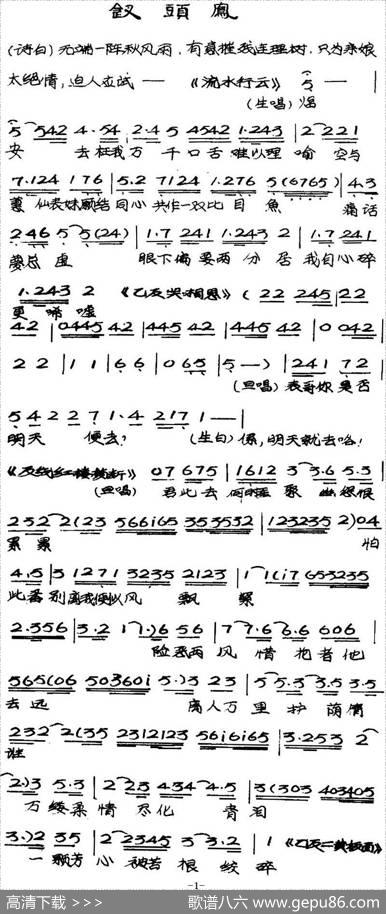 釵頭鳳
(詩白)无端一陈秋风雨，有意摧残连理树，只为亲娘
太绝情，迫人应试—— 《流水行云》 5 — |
(生唱) 烟
5 542 4·54 | 2·4 5 4542 1·243 | 2 221
安 去枉我万 千口舌难以理 喻 空与
7·124 176 | 5·2 7124 1·276 5(6765) | 4·3
蕙仙表妹愿结同心 共作一双比目 鱼 痛话
246 5 5(24) | 1·7 241 1·243 2 | 1·7 241
婆总 虚 眼下偏要两 分 居 我自心碎
1·243 2 《乙反哭相思》( 22 245 | 22
更 唏 嘘
42 | 0445 42 | 445 42 | 445 42 | 0 042 |
22 | 11 | 66 | 0 65 | 5 — ) | 241 72
(旦唱) 表哥你是否
5 42 2 7 1·4 217 1 — |
明天 便去? (生白) 係，明天就去咯!
07 675 | 1612 3 3·6 5·3 |
(旦唱) 君此去 何日重 聚 幽怨恨
232 2(23 566i65 353532 | 123235 2)04
累 累 怕
4·5 | 3 1271 3235 2123 | 1 1(i7 653235
此番别离我便似风 飘 絮
2·356 | 3·2 1 1·)6 56 | 7 7·6 6·6 606 |
险恶两 风 惜 花者他
565(06 503601 5·)3 23 | 5 5·3 3·5 3·5
去 远 离人万 里 护 荫情
232 2(35 2312123 561i65 | 3·253 2
谁
2·)3 5·3 | 2 23 434 4·5 | 3(303 403405
万缕柔 情 尽化 青 泪
3·)2 35 | 2 2345 3 3·2 | 1 《乙反二黄板面》
一颗芳 心 被苦 根 绞 碎
-1-
高清下载 >>> 歌谱八六 www.gepu86.com